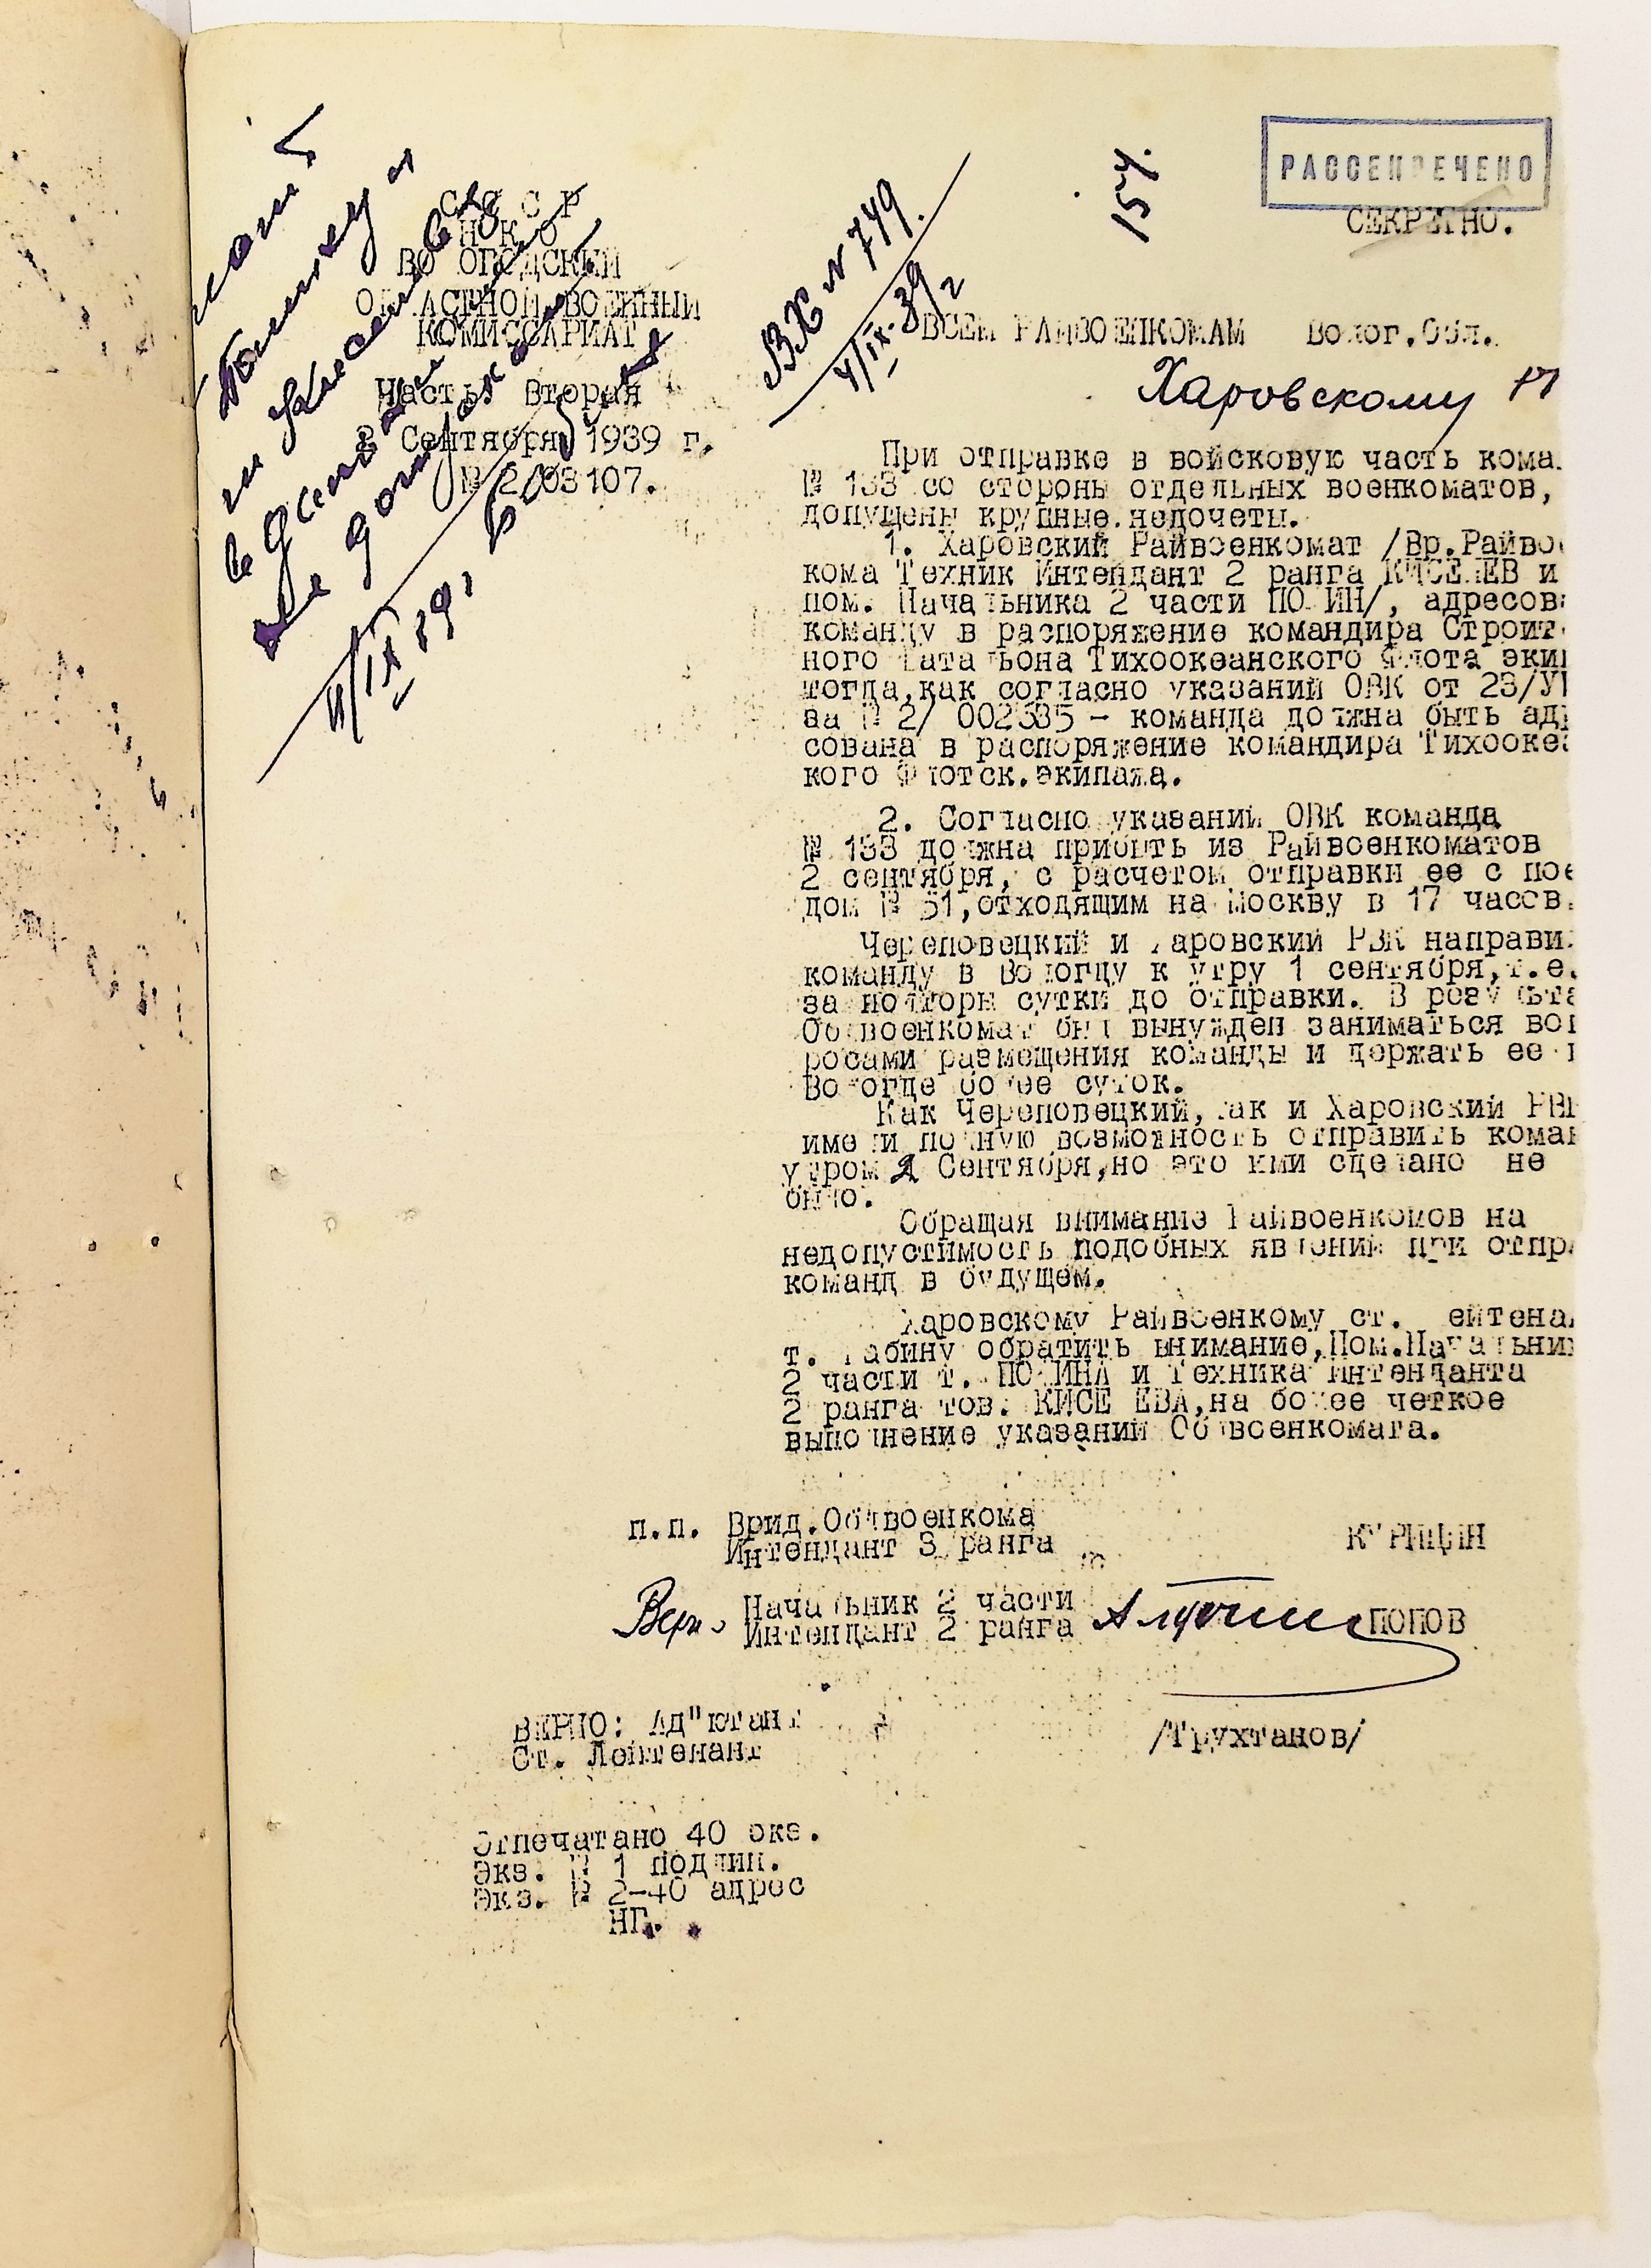 РАССЕКРЕЧЕНО
СЕКРЕТНО.
154.
С С С Р
Н К О
ВОЛОГОДСКИЙ
ОБЛАСТНОЙ ВОЕННЫЙ
КОМИССАРИАТ
Часть Вторая
Сентября 1939 г.
№ 2/003107.
ВХ № 749.
4/IX-39 г
4/IX 39 г
ВСЕМ РАЙВОЕНКОМАМ Волог.Обл.
Харовскому 17
При отправке в войсковую часть кома
№ 133 со стороны отдельных военкоматов,
допущены крупные недочеты.
1. Харовский Райвоенкомат /Вр.Райво
кома Техник Интендант 2 ранга КИСЕЛЕВ и
пом. Начальника 2 части ПОЛИН/, адресов
команду в распоряжение командира Строит
ного Батальона Тихоокеанского Флота эки
тогда,как согласно указаний ОВК от 23/У
за № 2/ 002335 - команда должна быть ад
сована в распоряжение командира Тихооке
кого Флотск.экипажа.
2. Согласно указаний ОВК команда
№ 133 должна прибыть из Райвоенкоматов
2 сентября, с расчетом отправки ее с пое
дом № 51,отходящим на Москву в 17 часов.
Череповецкий и Харовский РВК направи
команду в Вологду к утру 1 сентября,т.е.
за полторы сутки до отправки. В результа
Облвоенкомат был вынужден заниматься воп
росами размещения команды и держать ее в
Вологде более суток.
Как Череповецкий,так и Харовский РВК
имели полную возможность отправить коман
утром 2 Сентября,но это ими сделано не
было.
Обращая внимание Райвоенкомов на
недопустимость подобных явлений при отпр
команд в будущем.
Харовскому Райвоенкому ст. Лейтена
т. абину обратить внимание,Пом.Начальни
2 части т. ПОЛИНА и Техника Интенданта
2 ранга тов. КИСЕЛЕВА,на более четкое
выполнение указаний Облвоенкомата.
п.п. Врид.Облвоенкома
Интендант 3 ранга КУРИЦИН
Верно Начальник 2 части
Интендант 2 ранга ПОПОВ
ВЕРНО: Ад"ютант
Ст. Лейтенант /Трухтанов/
Отпечатано 40 экз.
Экз. № 1 подлин.
Экз. № 2-40 адрес
НГ.